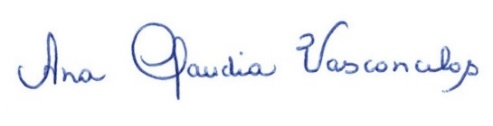 Ana Claudia Vasconculos